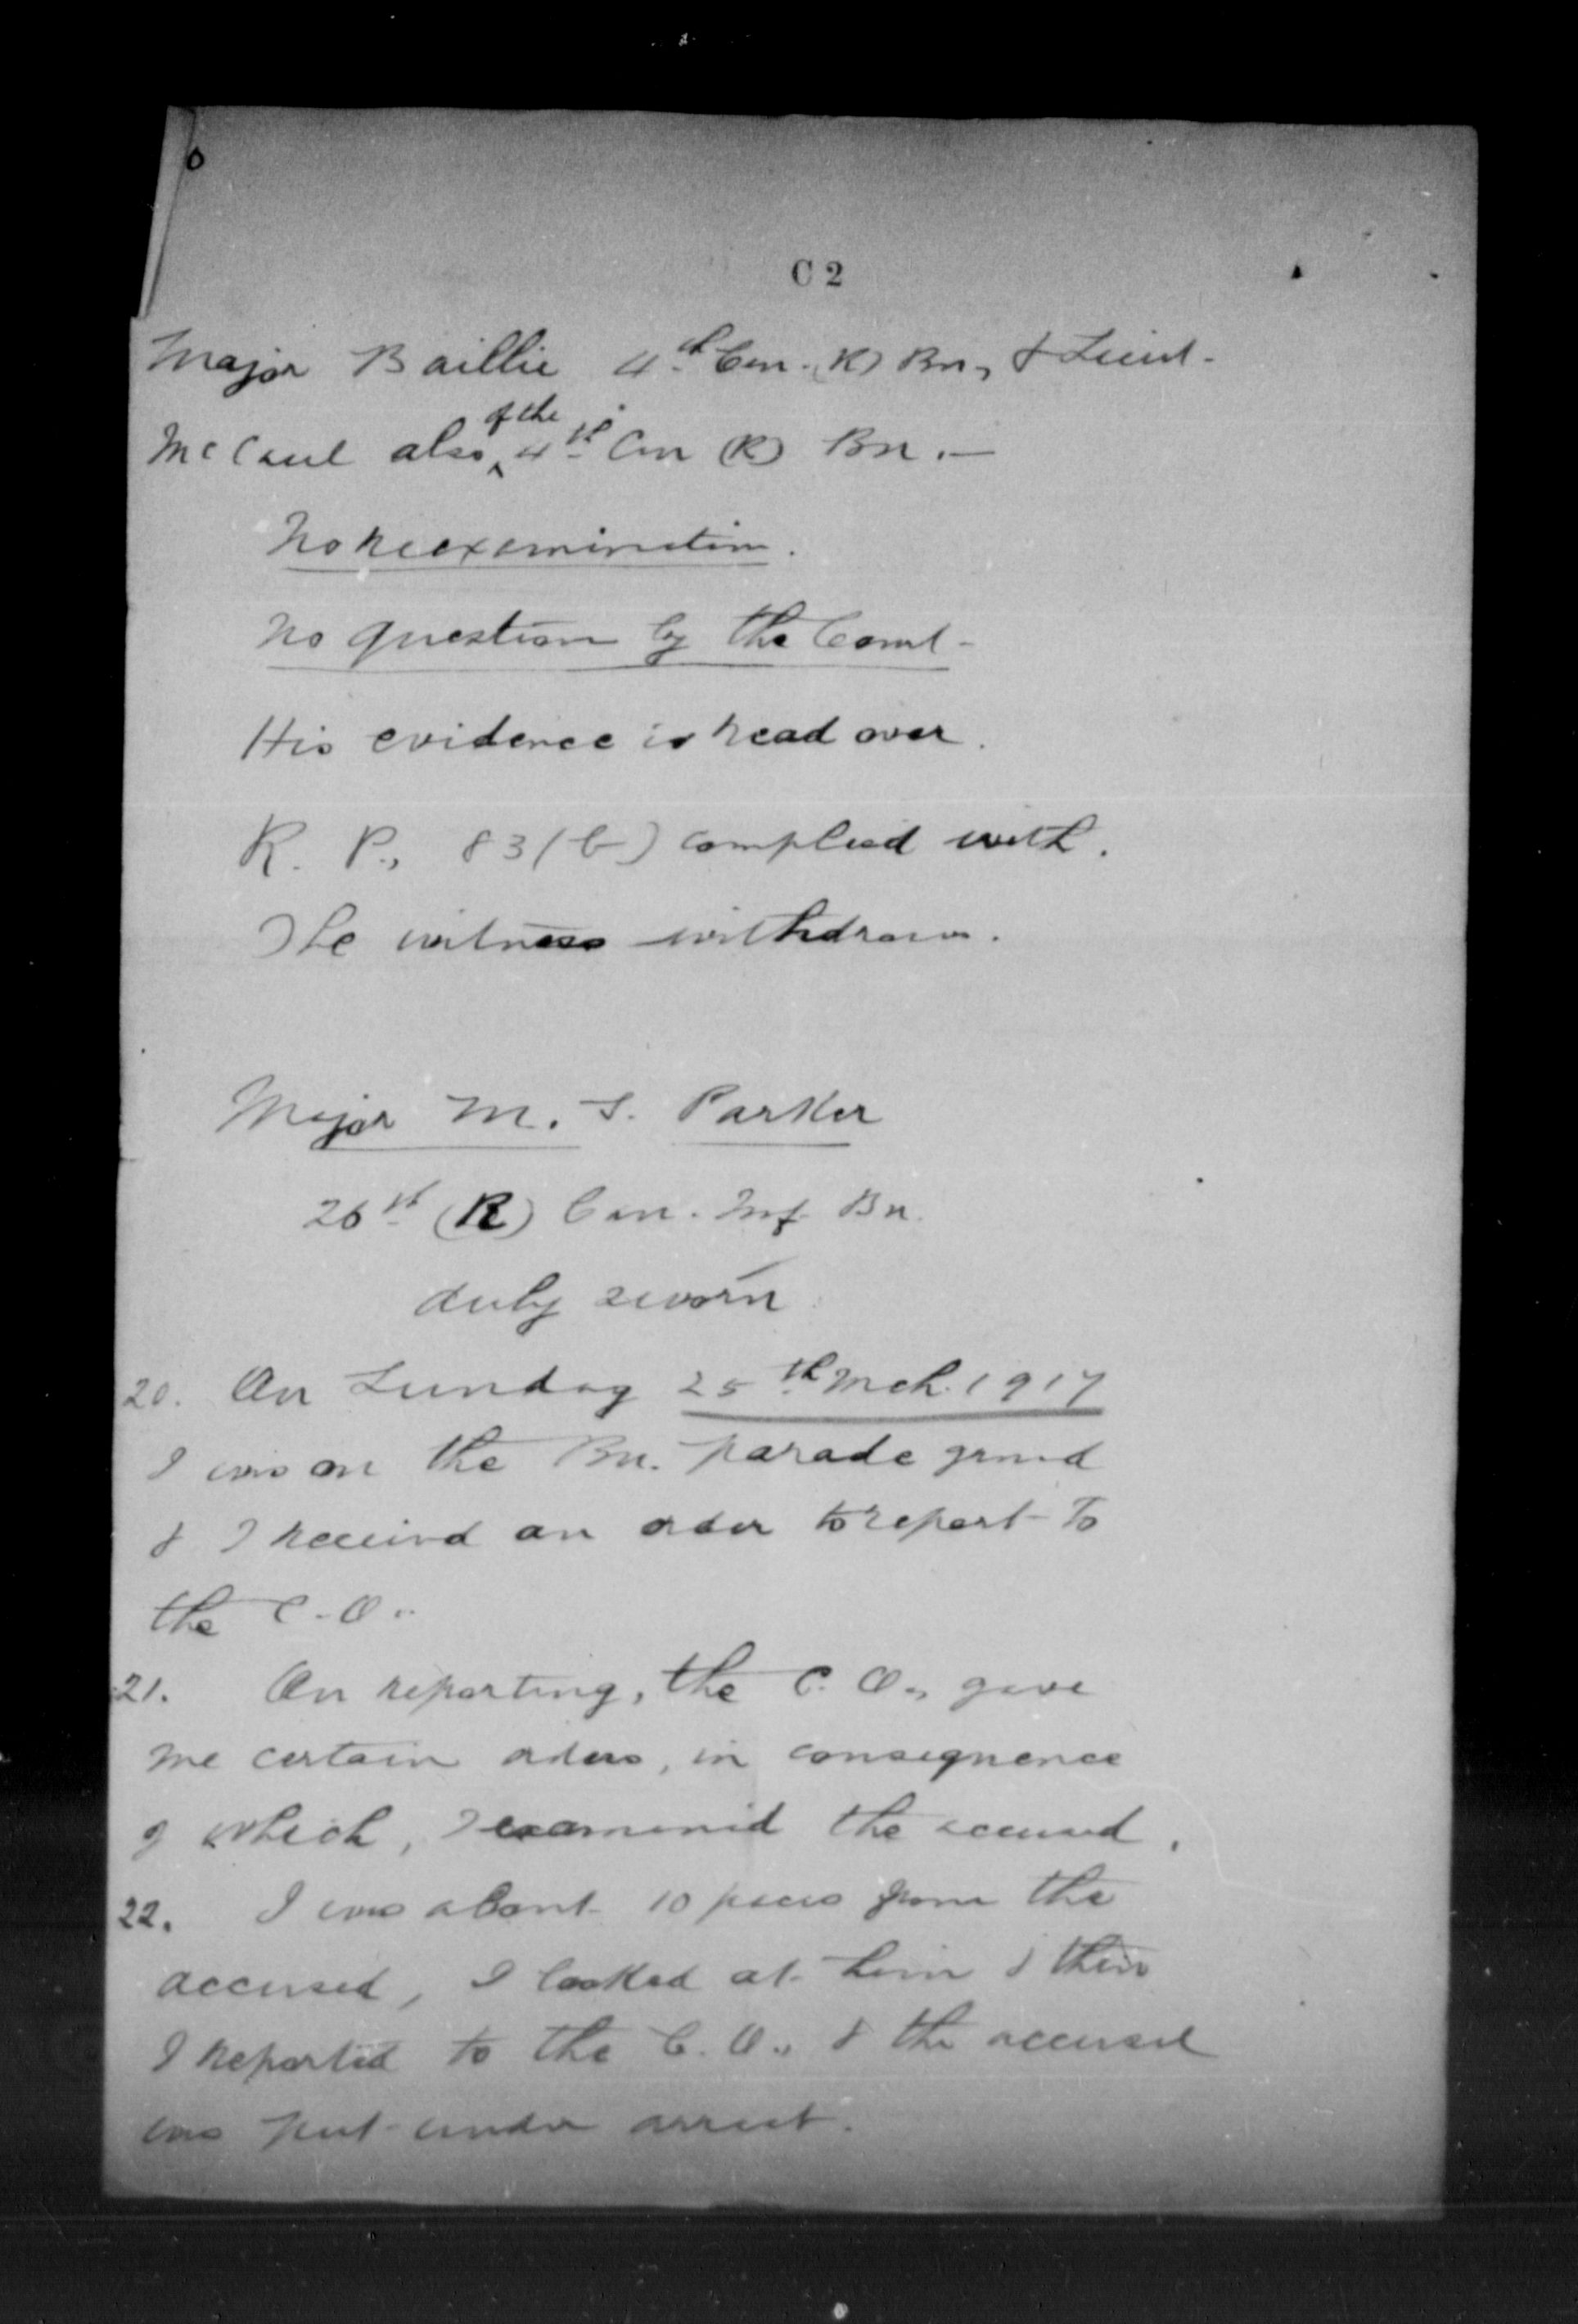 C 2
Major Baillie 4th Can. (R) Bn, & Lieut-
McCaul also of the 4th Can (R) Bn. —
No reexamination.
No question by the Court-
His evidence is read over.
R. P., 83 (b) complied with.
The witness withdraws.
Major M. S. Parker
26th (R) Can. Inf. Bn.
duly sworn
20. On Sunday 25th Mch. 1917
I was on the Bn. parade ground
& I received an order to report to
the C.O.
21. On reporting, the C.O., gave
me certain orders, in consequence
of which, I examined the accused.
22. I was about 10 paces from the
accused, I looked at him & then
I reported to the C.O., & the accused
was put under arrest.